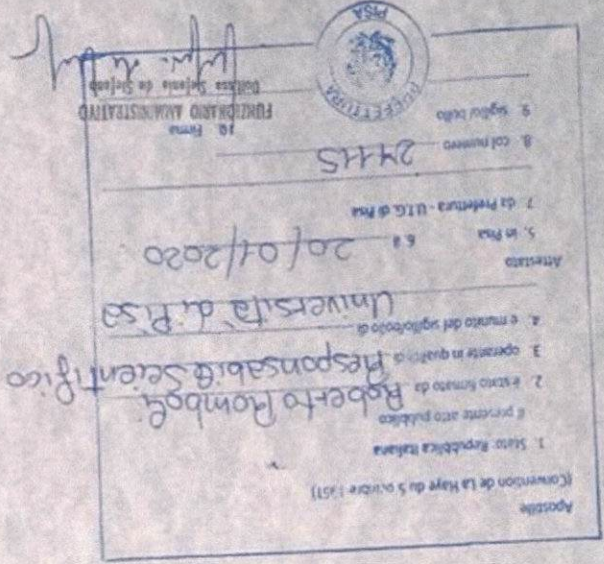 Apostille
(Convention de La Haye du 5 octobre 1961)
1. Stato: Repubblica Italiana
Il presente atto pubblico
2. è stato firmato da Roberto Romboli
3. operante in qualità di Responsabile Scientifico
4. è munito del sigillo/bollo di
Università di Pisa
Attestato
5. in Pisa 6. il 20/01/2020
7. da Prefettura - U.T.G. di Pisa
8. col numero 24115
9. sigillo/ bollo 10. Firma
FUNZIONARIO AMMINISTRATIVO
Dott.ssa Stefania de Stefano
PREFETTURA
PISA